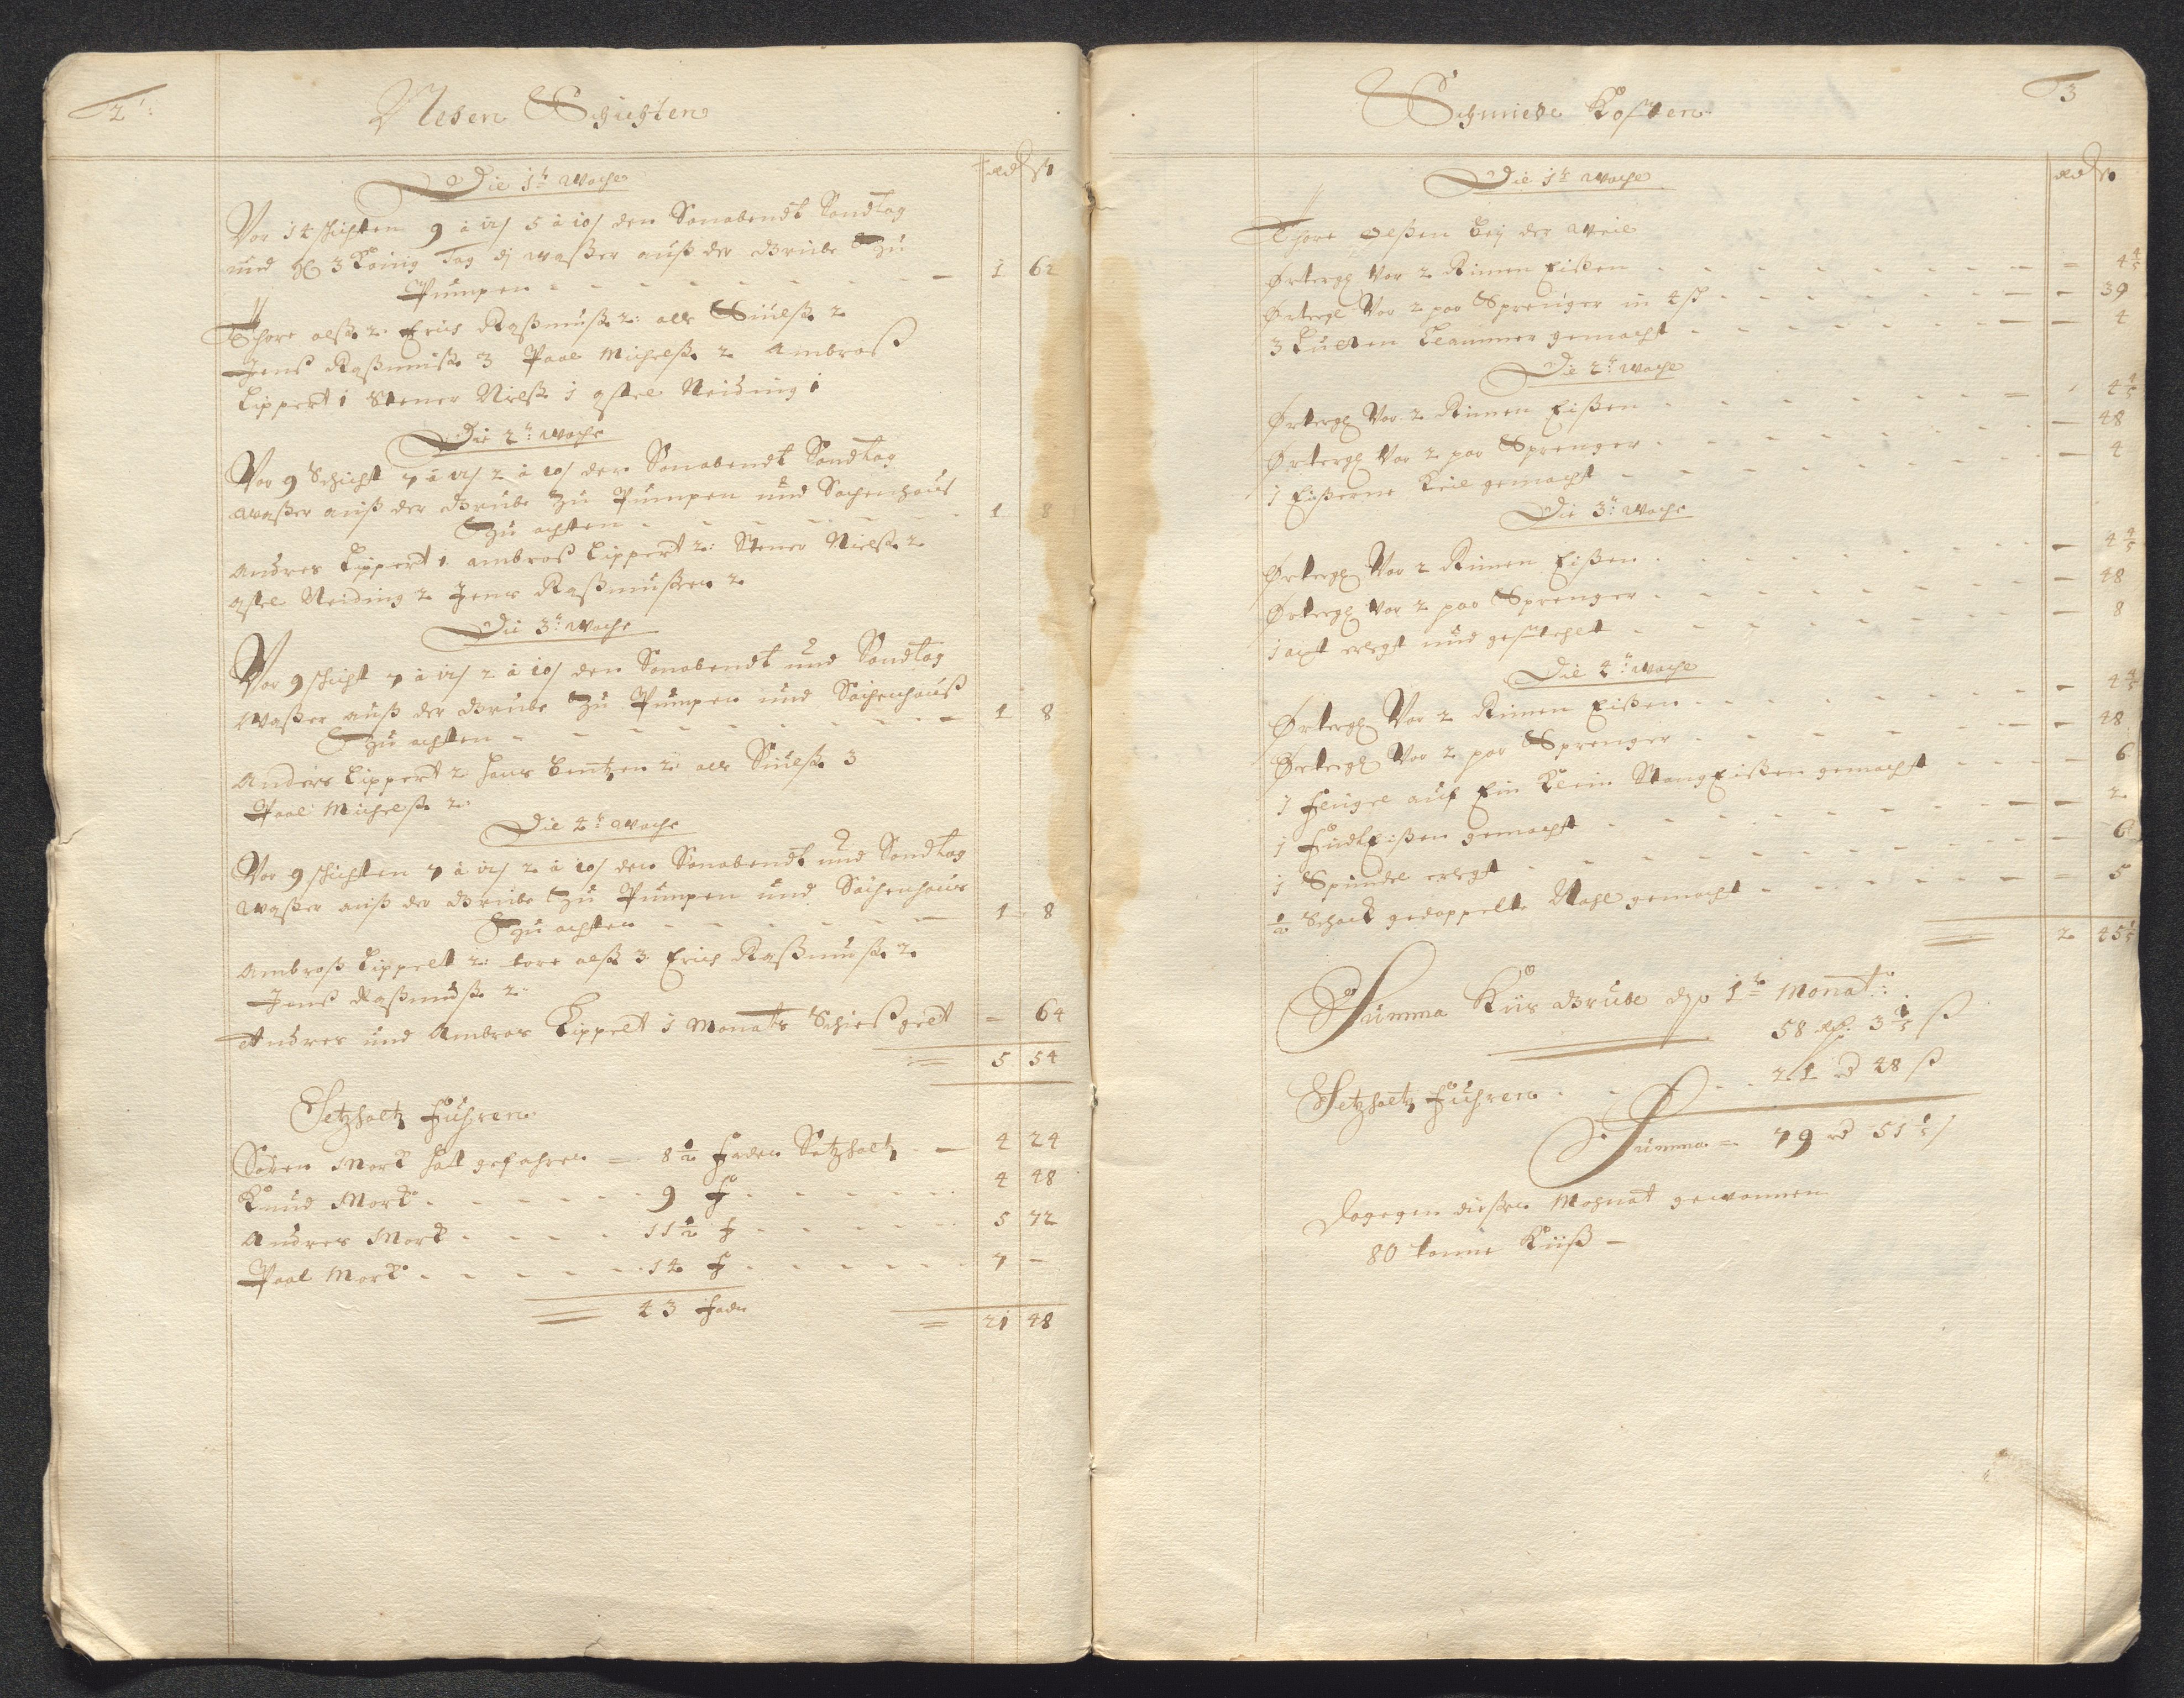 2:
Neben Schichten
Rd ß
Die 1te Woche
Vor 14 schichten 9 à 12ß 5 à 10ß den Sonabendt Sondtag
und 3 König Tag dz Waßer auß der Grube Zu
Pumpen - - - - - - - - 1 62
Thore olß. 2: Erich Raßmuß. 2: olle Siulß. 2
Jenß Raßmuß. 3 Paal Michelß. 2 Ambroß
Lippert 1 Stener Nielß. 1 Neiding 1
Die 2te Woche
Vor 9 Schicht 7 à 12ß 2 à 10ß den Sonabendt Sondtag
Waßer auß der Grube Zu Pumpen und Sachenhaus
Zu achten - - - - - - - - 1 8
Andres Lippert 1 ambroß Lippert 2: Stener Nielß. 2
Neiding 2 Jens Raßmußen 2
Die 3te Woche
Vor 9 schicht 7 à 12ß 2 à 10ß den Sonabendt und Sondtag
Waßer auß der Grube Zu Pumpen und Sachenhauß
Zu achten - - - - - - - - 1 8
Anders Lippert 2 Hans Bentzen 2 olle Siulß. 3
Paal Michelß. 2:
Die 4te Woche
Vor 9 schichten 7 à 12ß 2 à 10ß den Sonabendt und Sondtag
Waßer auß der Grube Zu Pumpen und Sachenhaus
Zu achten - - - - - - - 1 8
Ambroß Lippelt 2: tore olß. 3 Erich Raßmuß. 2
Jenß Raßmuß. 2:
Andres und Ambros Lippelt 1 Monats Schießgelt = 64
= 5 54
Setzholtz Fuhren
Sören Mork hat gefahren = 8 1/2 Faden Setzholtz - 4 24
Knud Mork - - - - - 9 F - - - - - 4 48
Andres Mork - - - - 11 1/2 F - - - - - 5 72
Paal Mork - - - - - 14 F - - - - - 7 -
43 Faden = 21 48
3
Schmiede Kosten
Rd ß
Die 1te Woche
Thore olßen beÿ der Weile
Vor 2 Rimen Eißen - - - - - - - = 4 4/5
Vor 2 par Sprenger in 4 ß - - - - - - - 39
3 Klammer gemacht - - - - - - - 4
Die 2te Woche
Vor 2 Rimen Eißen - - - - - - - 4 4/5
Vor 2 par Sprenger - - - - - - - 48
1 Eißerne Keil gemacht - - - - - - - 4
Die 3te Woche
Vor 2 Rimen Eißen - - - - - - - 4 4/5
Vor 2 par Sprenger - - - - - - - 48
1 axt erlegt und gestehelt - - - - - - - 8
Die 4te Woche
Vor 2 Rimen Eißen - - - - - - - 4 4/5
Vor 2 par Sprenger - - - - - - - 48
1 Feugel auf Ein Klein Stang Eißen gemacht - - - - 6
1 Eißen gemacht - - - - - - - 2
1 Spindel erlegt - - - - - - - 6
1/2 Schock gedoppelte Nagl gemacht - - - - - = 5
2 45 1/5
Summa Kiis Grube 1te Monat:
58 3 1/5 ß
Setzholtz Fuhren - - - 21 rd 48 ß
Summa = 79 rd 51 1/5 ß
Dagegen dießen Mohnat gewonnen
80 tonne Kiiß -